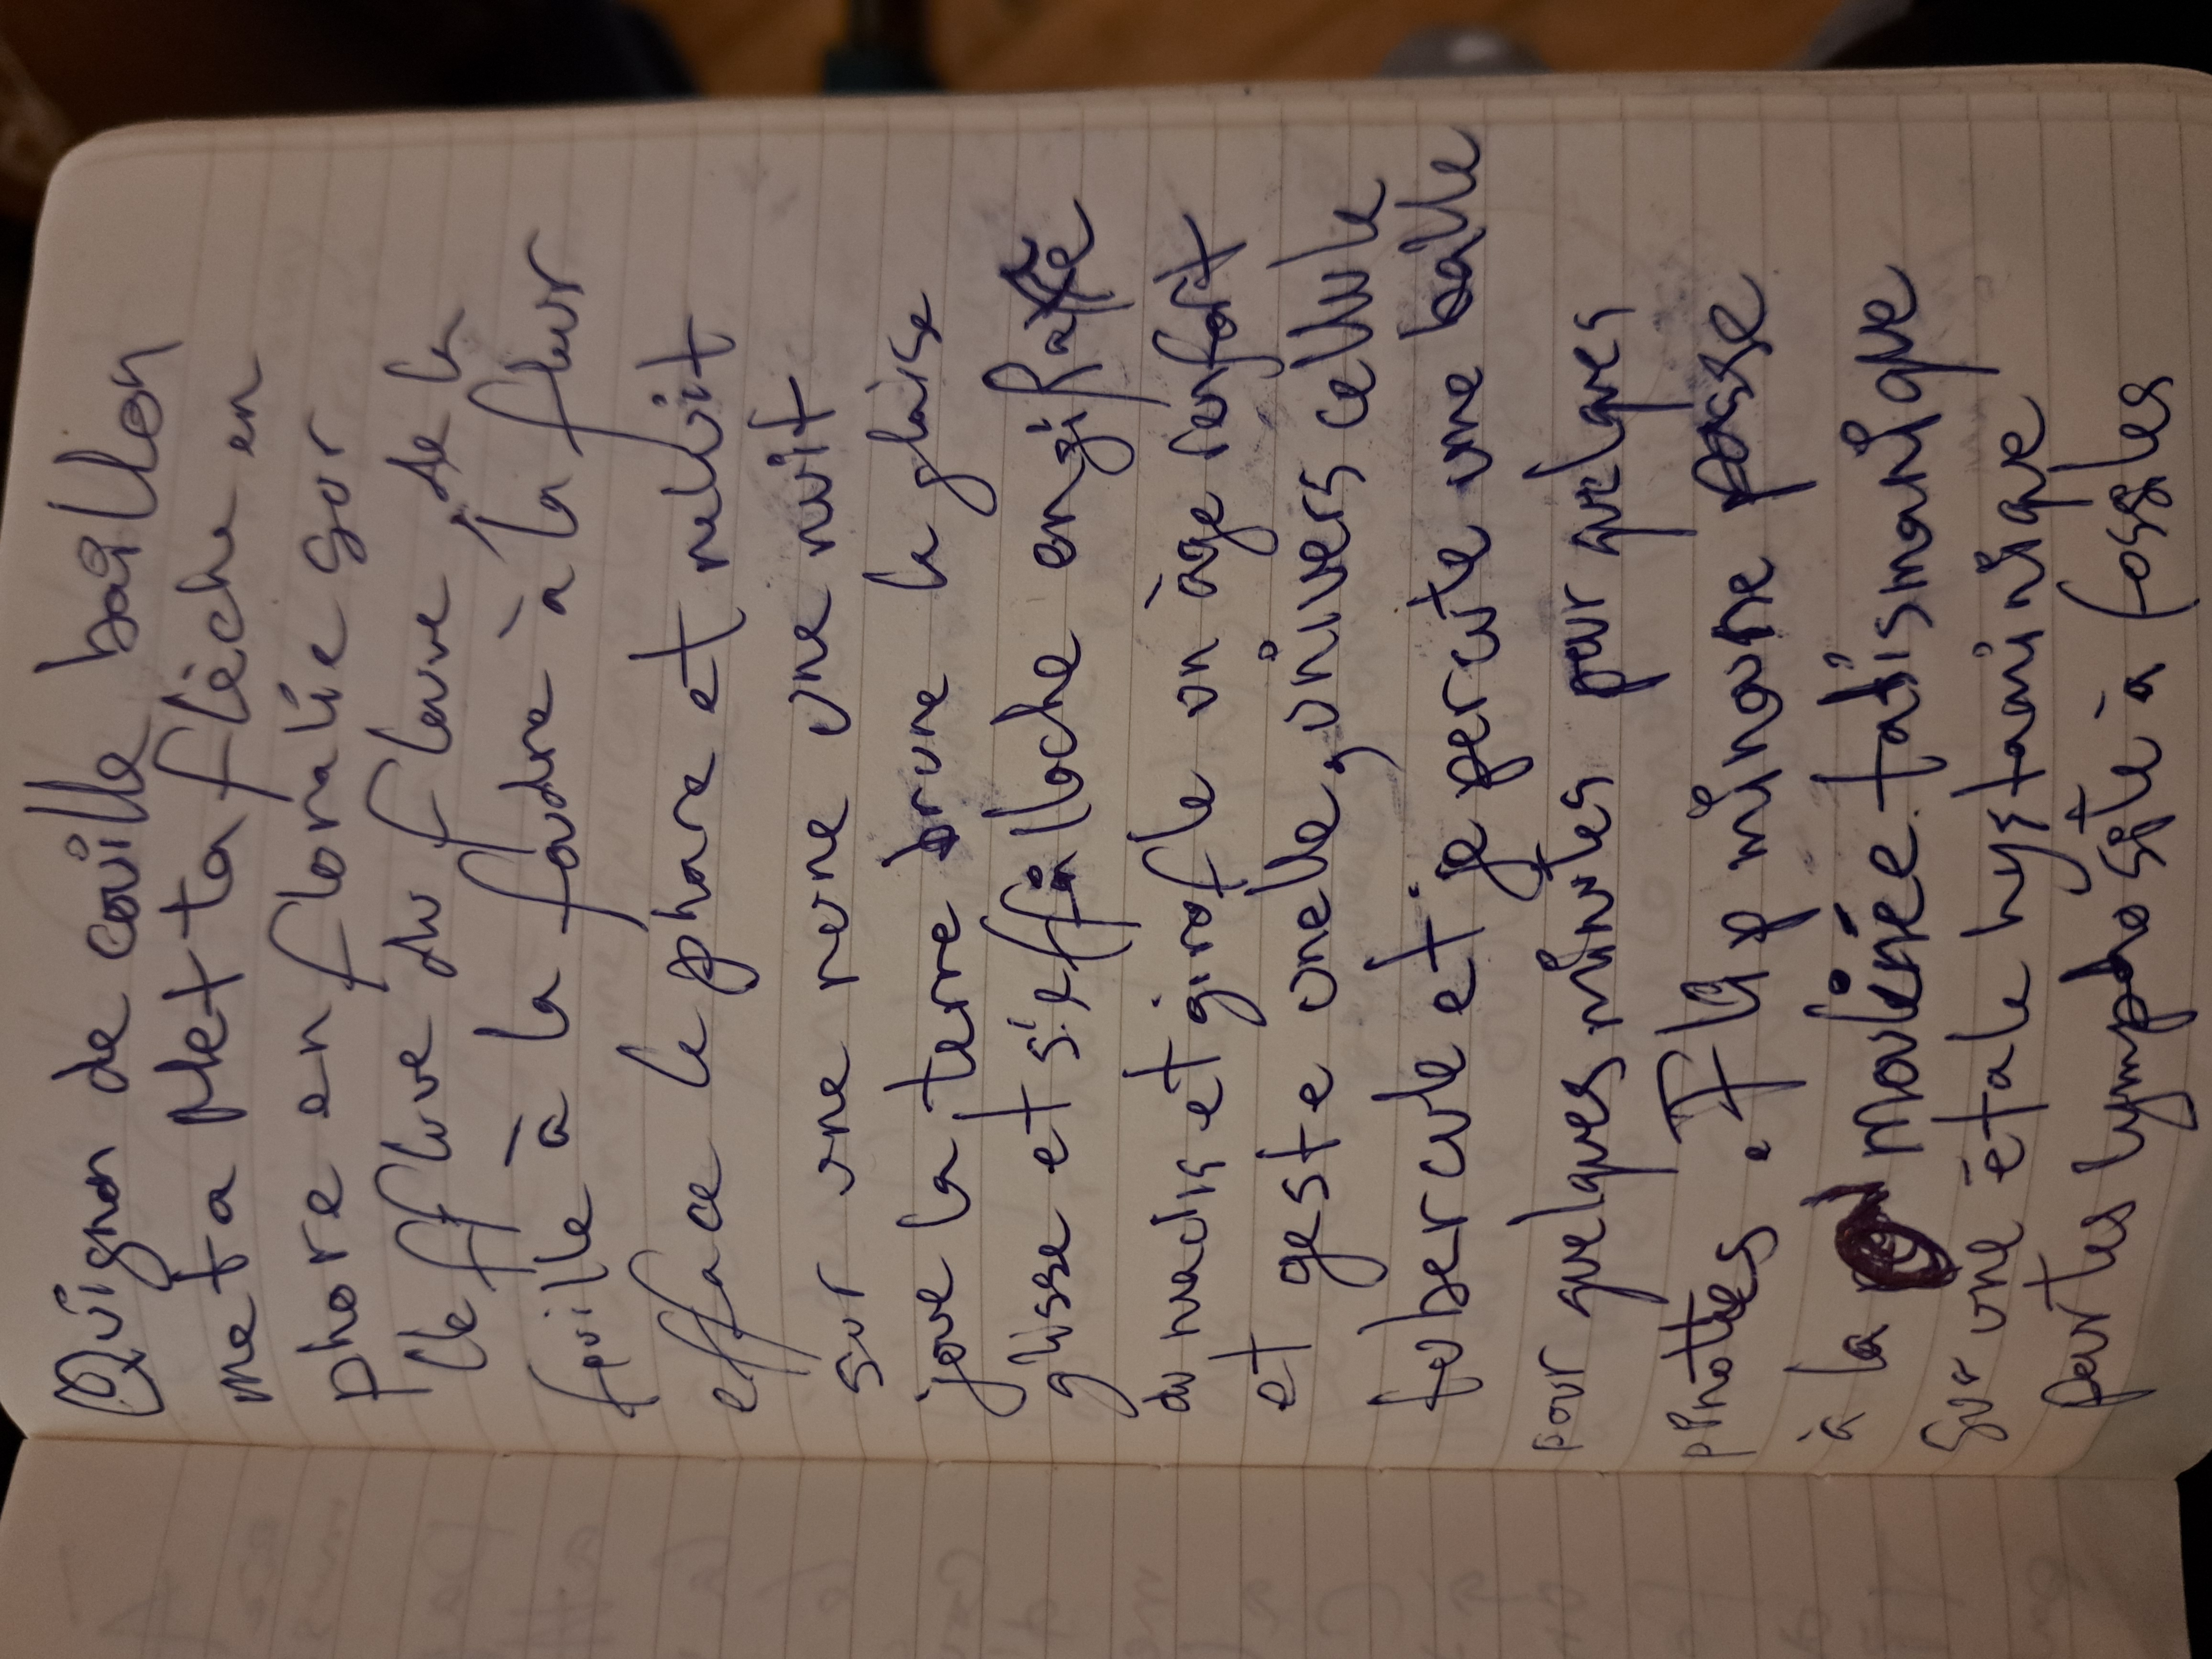 Quignon de couille baîllon
met a plet ta flèche en
phore en floralie sur
l'effluve du fleuve de la
fouille à la foudre à la fleur
efface le phare et reluit
sur une rune une nuit
joue la terre brune la glaise
glisse et s'effiloche en gi
du maclis et girofle un âge
et geste onelle, univers cellule
tubercule et je percute une balle
pour quelques minutes pour quelques
pinottes. Il y minoune passe
à la moulinée talismanique
sur une étale hystaminique
perles lympho site à fossles